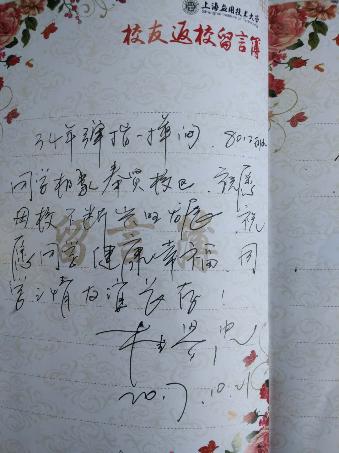 上海应用技术大学
校友返校留言簿
34年弹指一挥间，8012班
同学相聚奉贤校区，祝愿
母校不断兴旺发展，祝
愿同学健康幸福，同
学之情友谊长存！
2017.10.21
留言簿